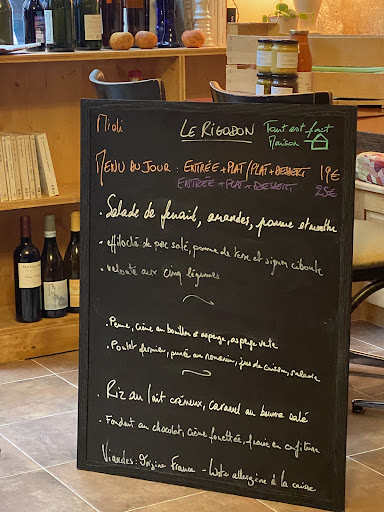 Midi
LE RIGODON
Tout est fait
Maison
MENU DU JOUR : ENTRÉE + PLAT / PLAT + DESSERT 19€
ENTRÉE + PLAT + DESSERT 25€
• Salade de fenouil, amandes, pomme et menthe
• effiloché de porc salé, pomme de terre et oignon ciboule
• velouté aux cinq légumes
• Penne, crème au bouillon d'asperge, asperge verte
• Poulet fermier, purée au romarin, jus de cuisson, salade
• Riz au lait crémeux, caramel au beurre salé
• Fondant au chocolat, crème fouettée, fraise en confiture
Viandes : Origine France - Liste allergène à la cuisine